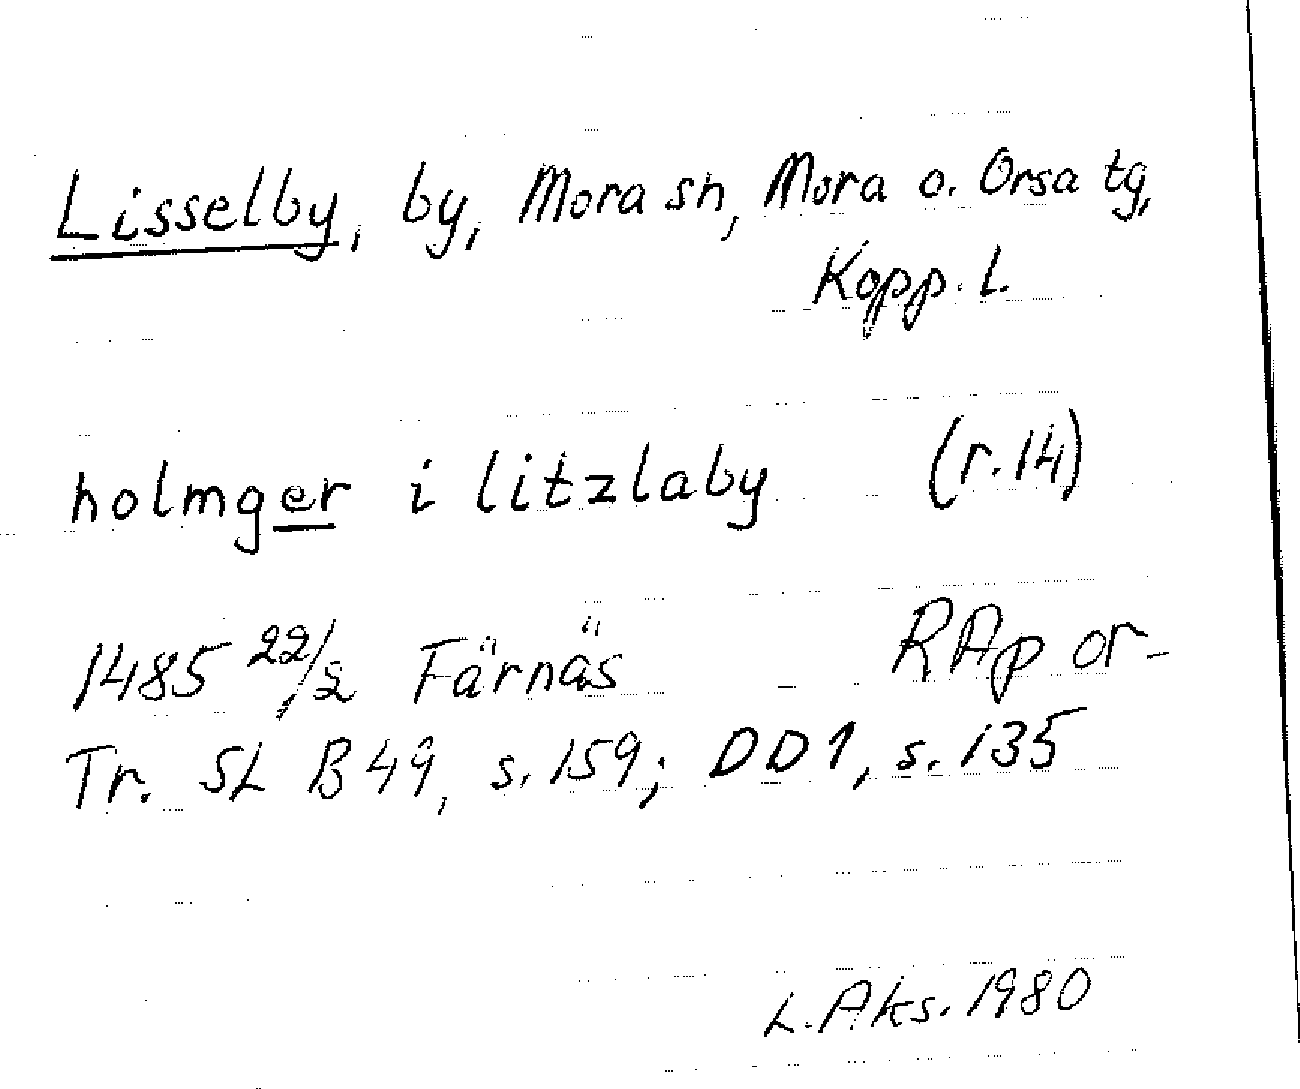 Lisselby, by, Mora sn, Mora o. Orsa tg,
Kopp. l.
holmger i litzlaby (r.14)
1485 22/2 Färnäs RAp or-
Tr. SL B 49, s. 159; DD1, s. 135
L. Aks. 1980